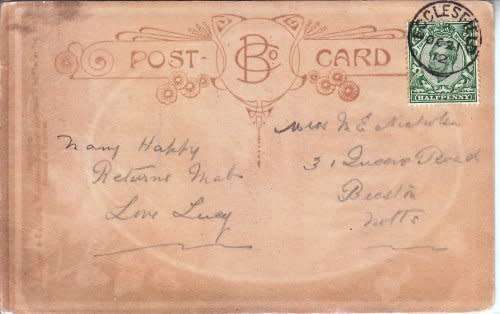 POST- BCo CARD
ECCLESFIELD
HALFPENNY
Many Happy
Returns Mab
Love Lucy
Miss M E Nicholson
3, Queens Road
Beeston
Notts